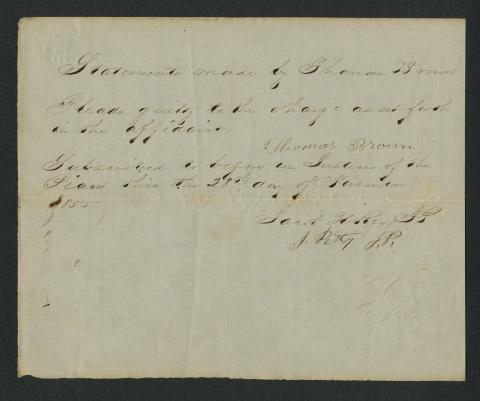 Statements made by Thomas Brown
Pleads guilty to the charge as set forth
in the affidavit
Thomas Brown
Subscribed to before us Justices of the
Peace this the 28th day of November
1855
J. Petty J.P.